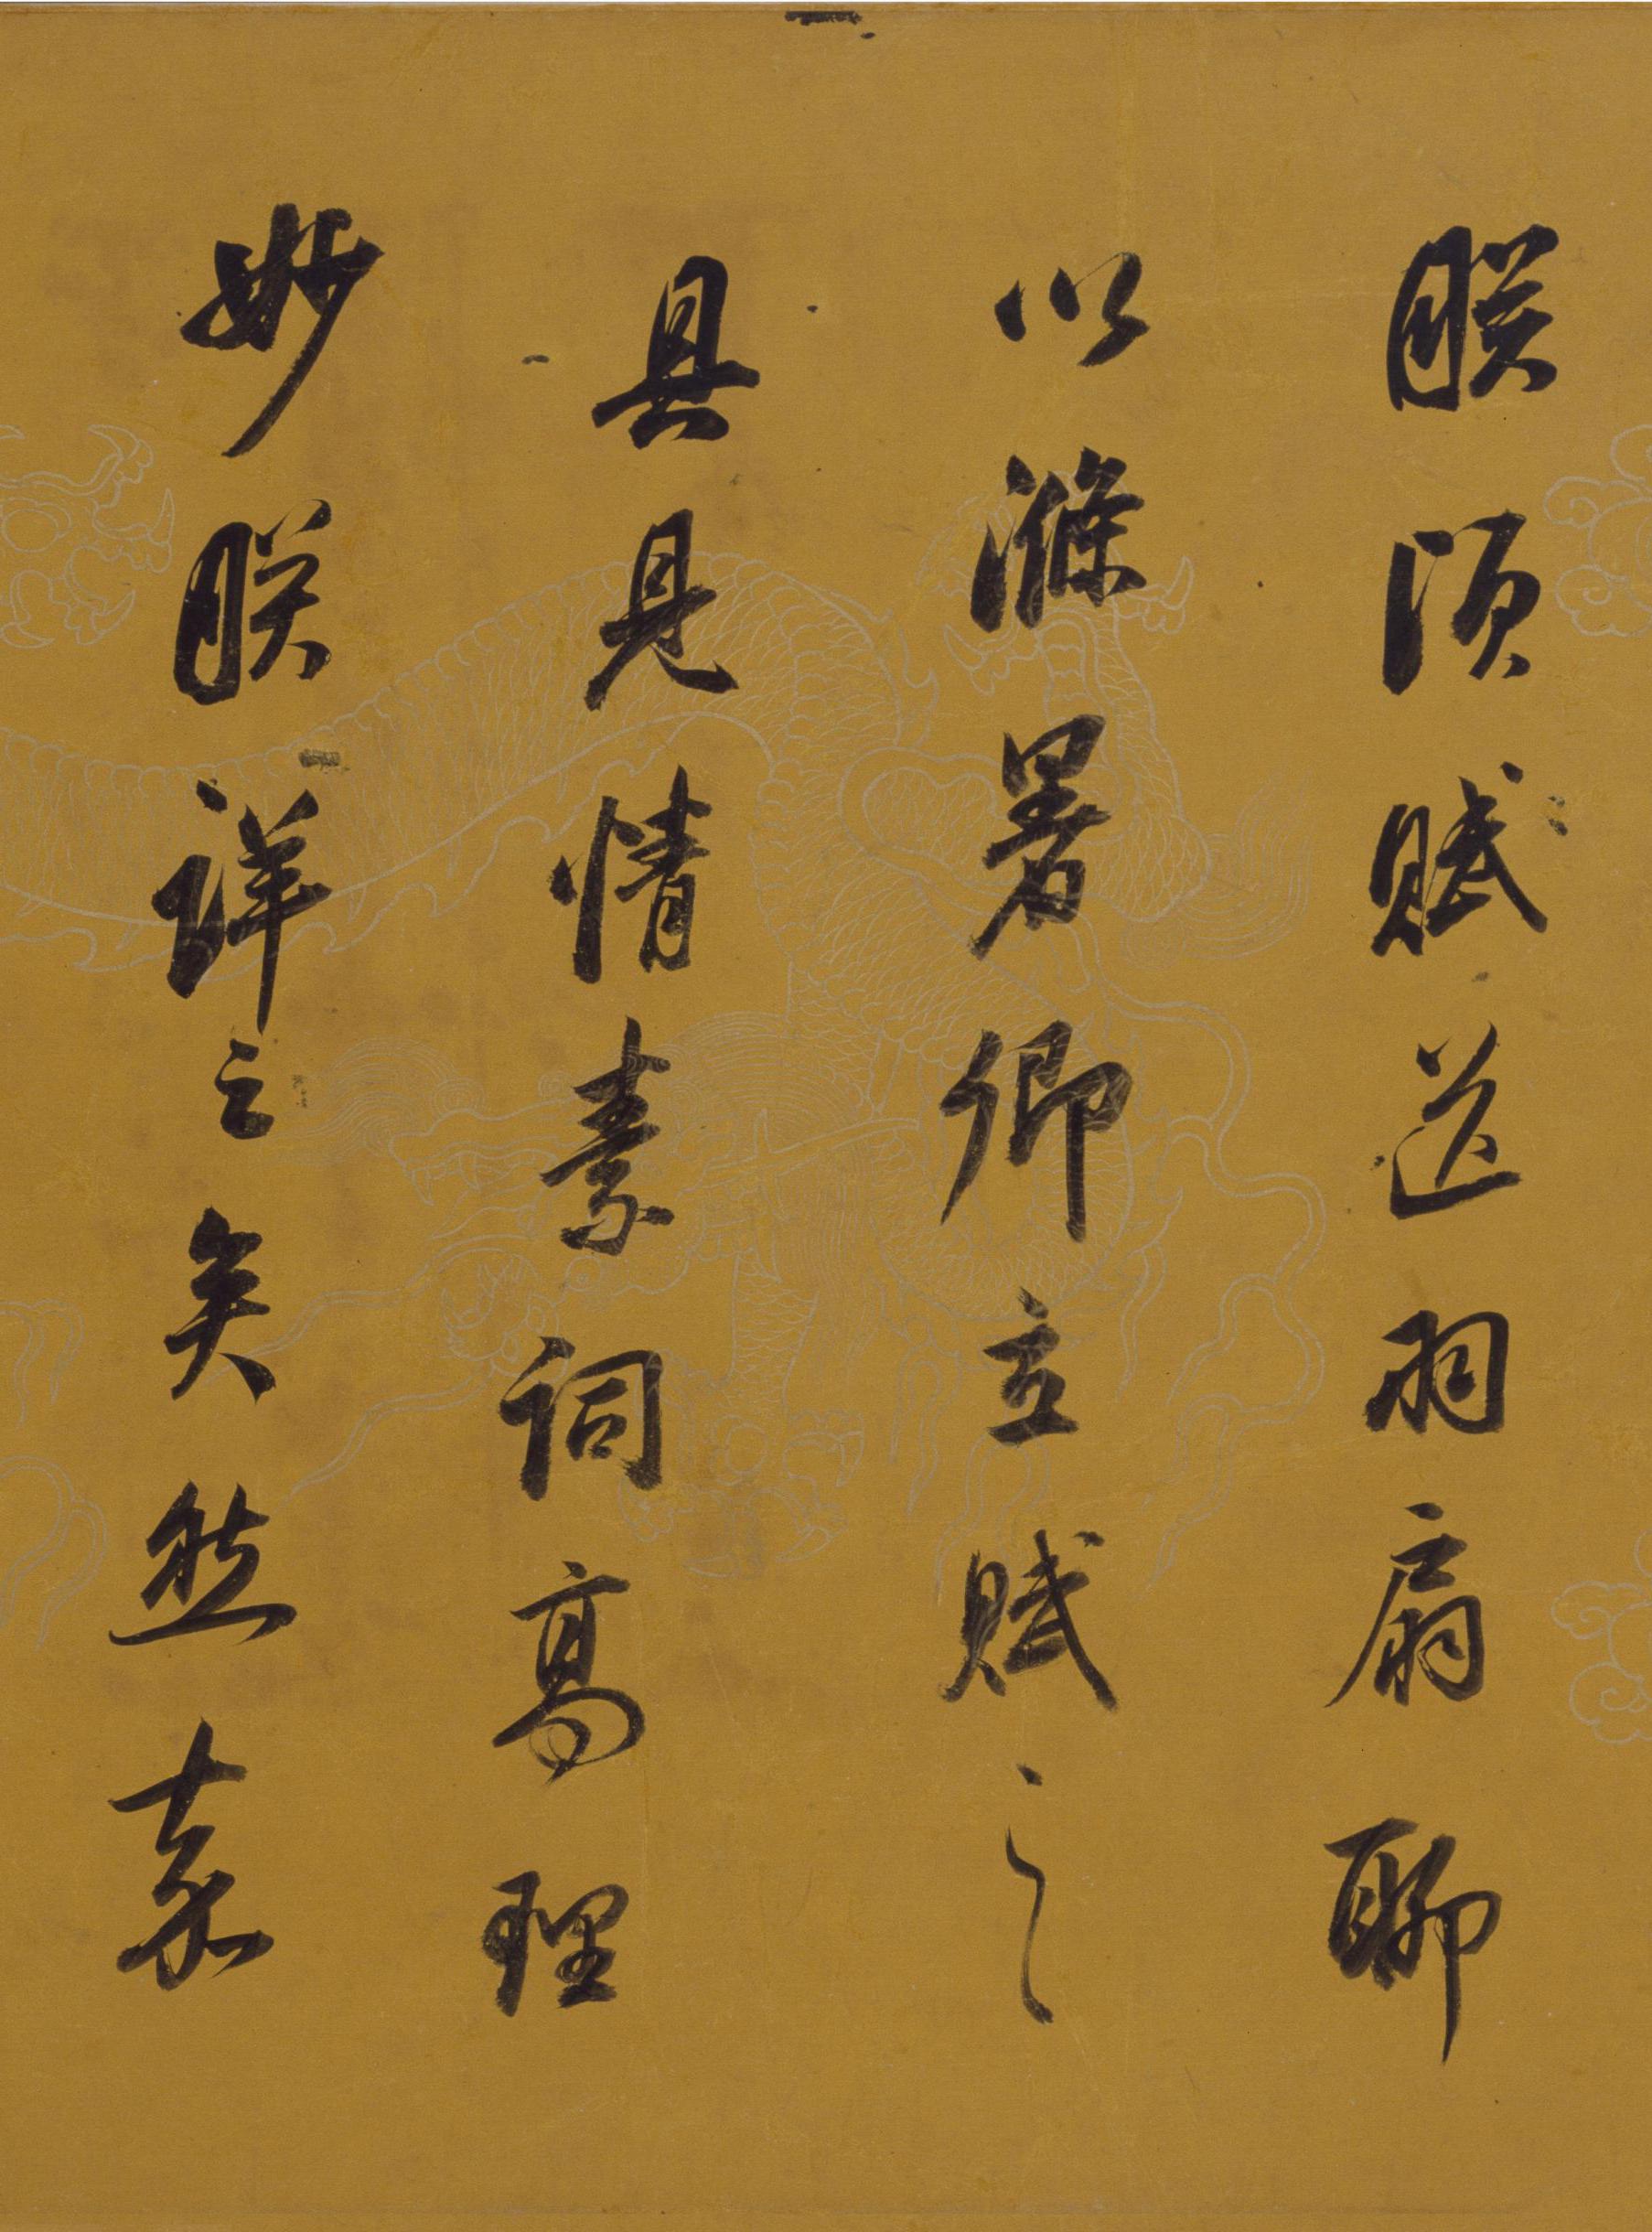 朕頃賦送羽扇聊
以滌暑卿立賦之
具見情素詞高理
妙朕詳之矣然素